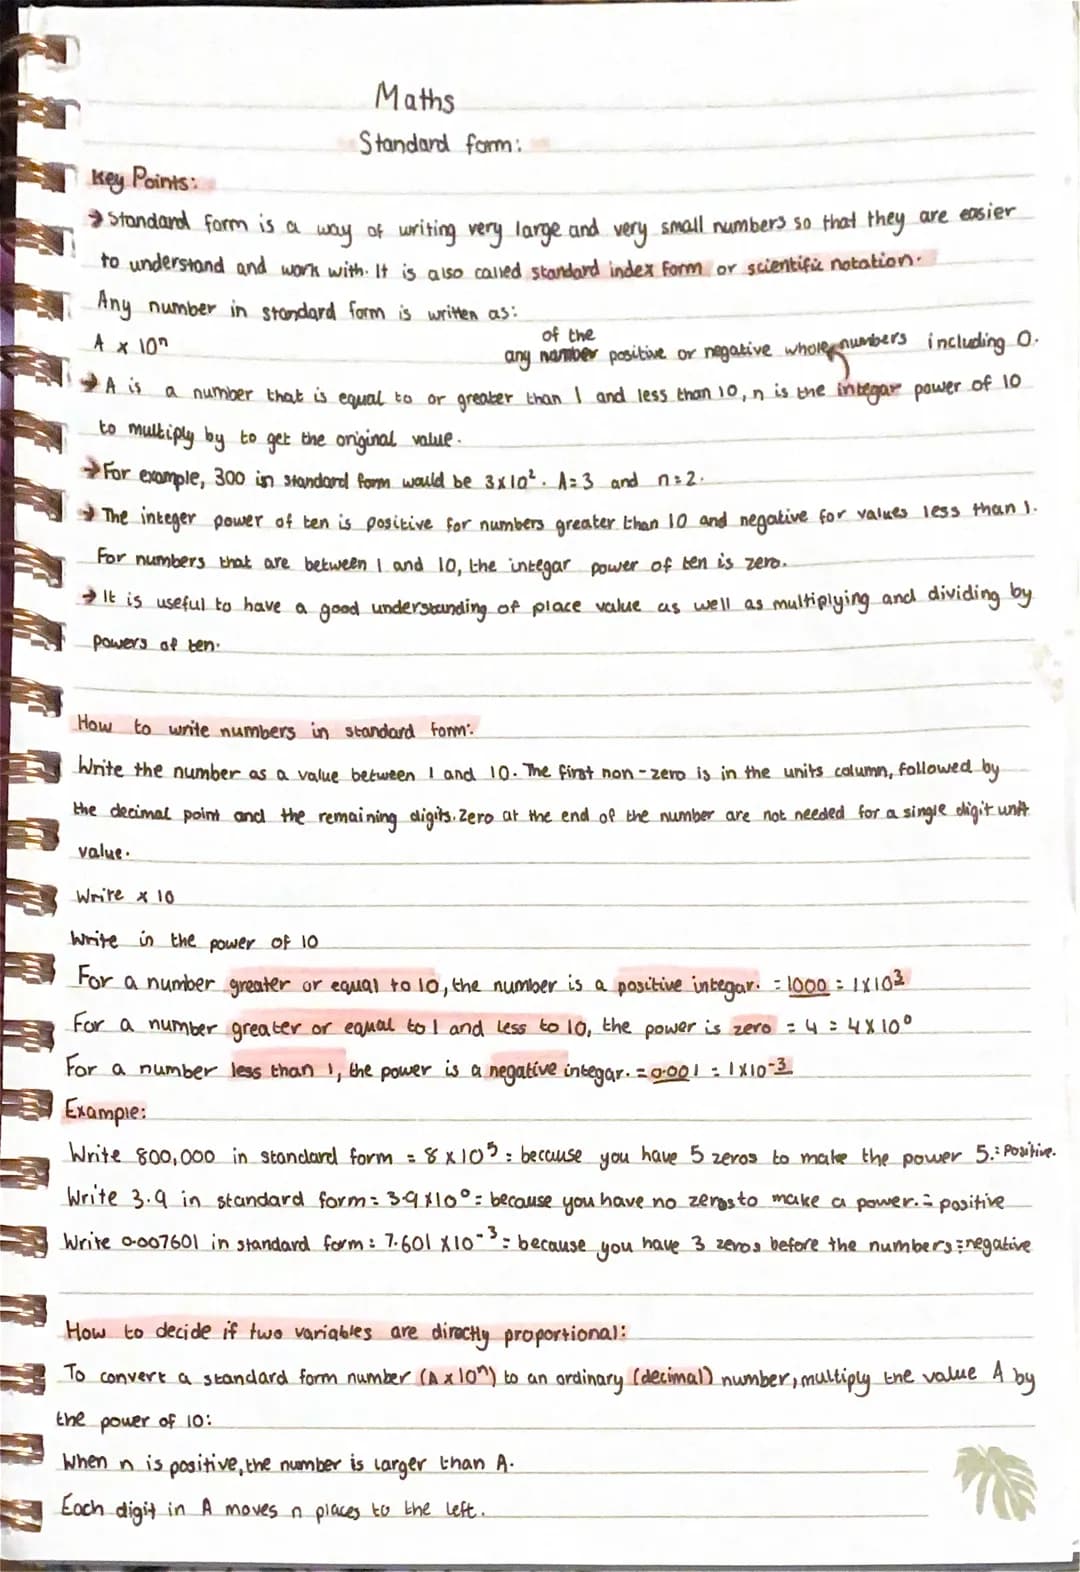 Maths
Standard form:
Key Points:
→ Standard form is a way of writing very large and very small numbers so that they are easier
to understand and work with. It is also called standard index form or scientific notation.
Any number in standard form is written as:
A x 10ⁿ
of the
any number positive or negative whole numbers including 0.
→ A is a number that is equal to or greater than 1 and less than 10, n is the integar power of 10
to multiply by to get the original value.
→ For example, 300 in standard form would be 3x10². A=3 and n=2.
→ The integer power of ten is positive for numbers greater than 10 and negative for values less than 1.
For numbers that are between 1 and 10, the integar power of ten is zero.
→ It is useful to have a good understanding of place value as well as multiplying and dividing by
powers of ten.
How to write numbers in standard form:
Write the number as a value between 1 and 10. The first non-zero is in the units column, followed by
the decimal point and the remaining digits. Zero at the end of the number are not needed for a single digit unit
value.
Write x 10
Write in the power of 10
For a number greater or equal to 10, the number is a positive integar. = 1000 = 1x10³
For a number greater or equal to 1 and less to 10, the power is zero = 4 = 4x10⁰
For a number less than 1, the power is a negative integar. = 0.001 = 1x10⁻³
Example:
Write 800,000 in standard form = 8 x 10⁵ = because you have 5 zeros to make the power 5.= Positive.
Write 3.9 in standard form = 3.9x10⁰ = because you have no zeros to make a power. = positive
Write 0.007601 in standard form = 7.601 x10⁻³ = because you have 3 zeros before the numbers =negative
How to decide if two variables are directly proportional:
To convert a standard form number (A x 10ⁿ) to an ordinary (decimal) number, multiply the value A by
the power of 10:
When n is positive, the number is larger than A.
Each digit in A moves n places to the left.